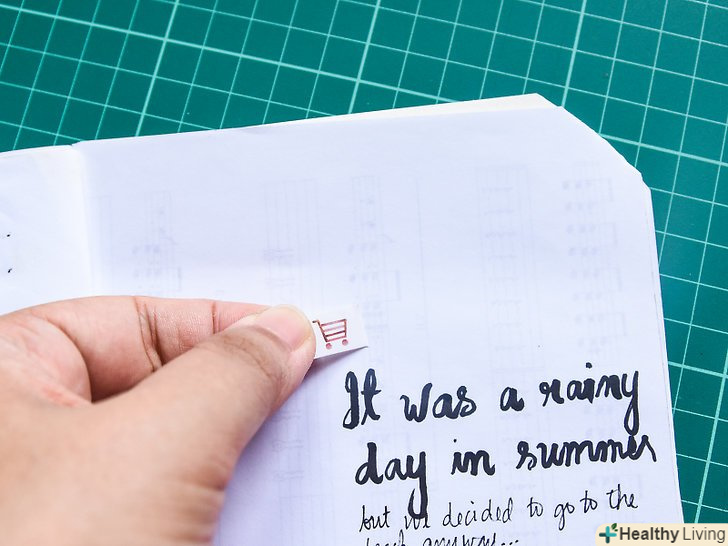 It was a rainy
day in summer
but we decided to go to the
anyway...
Healthy Living